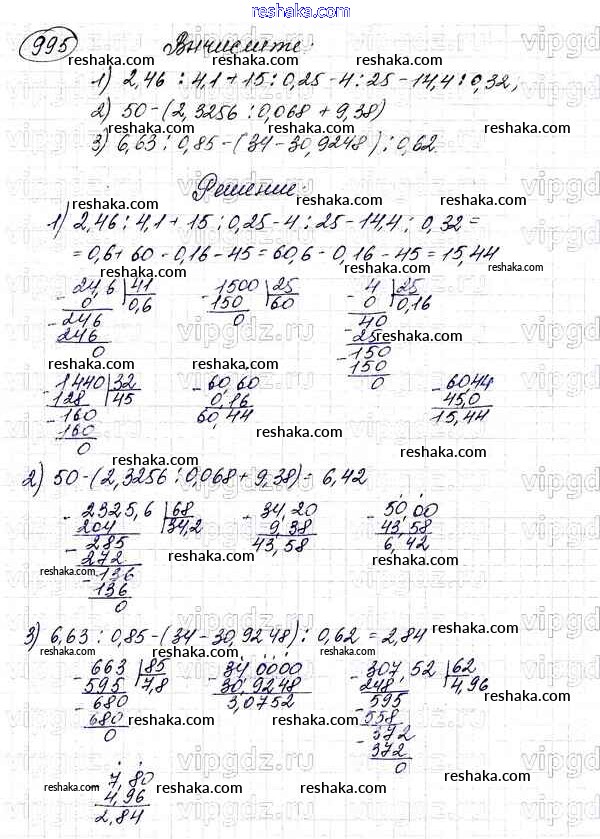 reshaka.com
995 Вычислите:
1) 2,46 : 4,1 + 15 : 0,25 - 4 : 25 - 14,4 : 0,32;
2) 50 - (2,3256 : 0,068 + 9,38)
3) 6,63 : 0,85 - (34 - 30,9248) : 0,62.
Решение:
1) 2,46 : 4,1 + 15 : 0,25 - 4 : 25 - 14,4 : 0,32 =
= 0,6 + 60 - 0,16 - 45 = 60,6 - 0,16 - 45 = 15,44
- 24,6 | 41
0 | 0,6
- 246
246
0
- 1500 | 25
150 | 60
0
- 4 | 25
0 | 0,16
- 40
25
- 150
150
0
- 1440 | 32
128 | 45
- 160
160
0
- 60,60
0,16
60,44
- 60,44
45,0
15,44
2) 50 - (2,3256 : 0,068 + 9,38) = 6,42
- 2325,6 | 68
204 | 34,2
- 285
272
- 136
136
0
- 34,20
9,38
43,58
- 50,00
43,58
6,42
3) 6,63 : 0,85 - (34 - 30,9248) : 0,62 = 2,84
- 663 | 85
595 | 7,8
- 680
680
0
- 34,0000
30,9248
3,0752
- 307,52 | 62
248 | 4,96
- 595
558
- 372
372
0
- 7,80
4,96
2,84
reshaka.com
vipgdz.ru